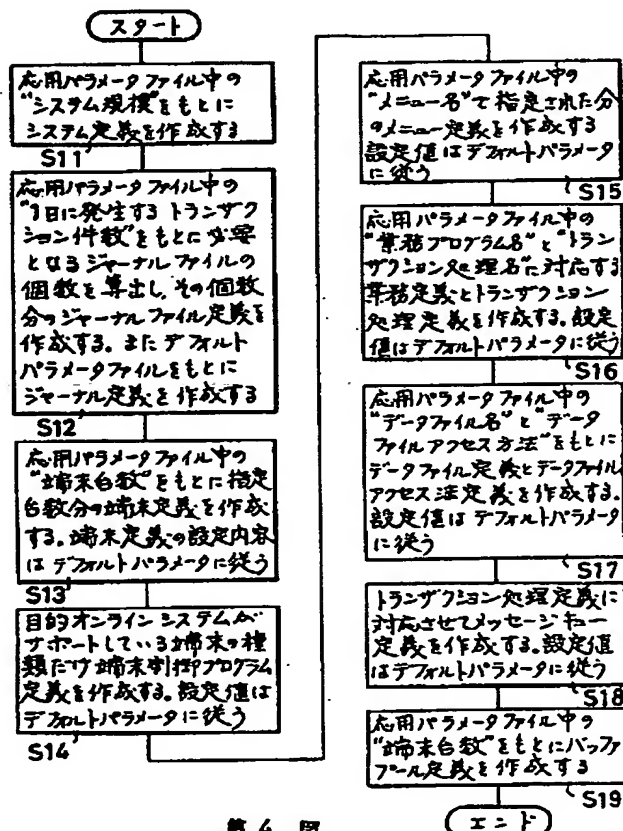 スタート
応用パラメータファイル中の
"システム規模"をもとに
システム定義を作成する
S11
応用パラメータファイル中の
"1日に発生するトランザク
ション件数"をもとに必要
となるジャーナルファイルの
個数を算出し,その個数
分のジャーナルファイル定義を
作成する。またデフォルト
パラメータファイルをもとに
ジャーナル定義を作成する
S12
応用パラメータファイル中の
"端末台数"をもとに指定
台数分の端末定義を作成
する。端末定義の設定内容
はデフォルトパラメータに従う
S13
目的オンラインシステムが
サポートしている端末の種
類だけ端末制御プログラム
定義を作成する。設定値は
デフォルトパラメータに従う
S14
応用パラメータファイル中の
"メニュー名"で指定された分
のメニュー定義を作成する
設定値はデフォルトパラメータ
に従う
S15
応用パラメータファイル中の
"業務プログラム名"と"トラン
ザクション処理名"に対応する
業務定義とトランザクション
処理定義を作成する。設定
値はデフォルトパラメータに従う
S16
応用パラメータファイル中の
"データファイル名"と"データ
ファイルアクセス方法"をもとに
データファイル定義とデータファイル
アクセス法定義を作成する。
設定値はデフォルトパラメータ
に従う
S17
トランザクション処理定義に
対応させてメッセージキュー
定義を作成する。設定値
はデフォルトパラメータに従う
S18
応用パラメータファイル中の
"端末台数"をもとにバッファ
プール定義を作成する
S19
エンド
第4図